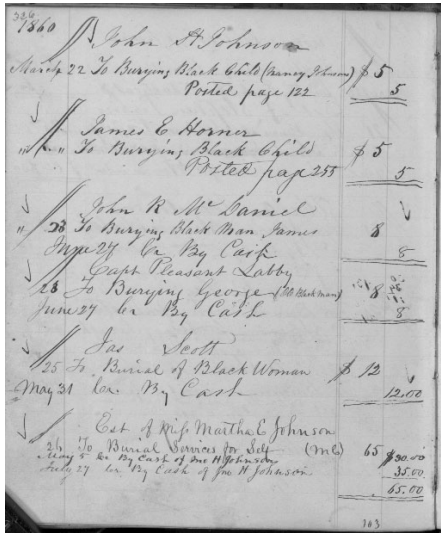 326
1860
John H Johnson
March 22 To Burying Black Child (Nancy Johnson) $ 5
Posted page 122 5
James E Horner
" " " To Burying Black Child $ 5
Posted page 255 5
John R McDaniel
" 23 To Burying Black Man James 8
June 27 Cr By Cash 8
Capt Pleasant Labby
23 To Burying George (Black man) 8
June 27 Cr By Cash 8
Jas Scott
25 To Burial of Black Woman $ 12
May 31 Cr. By Cash 12.00
Est of Miss Martha E Johnson
26 To Burial Services for Self 65
May 5 Cr By Cash of Jno H Johnson $30.00
July 27 Cr By Cash of Jno H Johnson 35.00
65.00
163